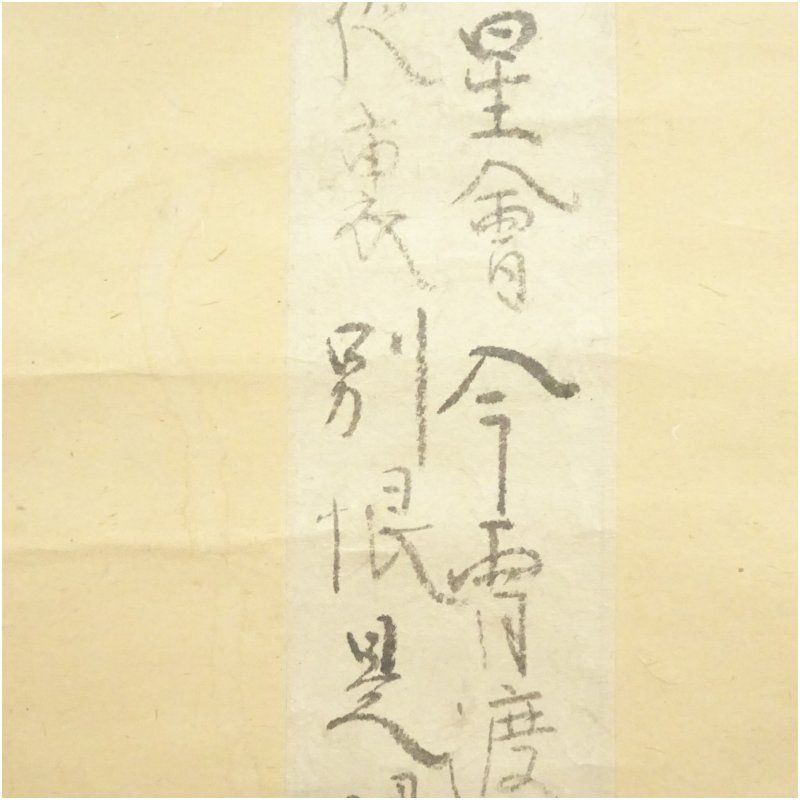 星會今宵渡
裏別恨是